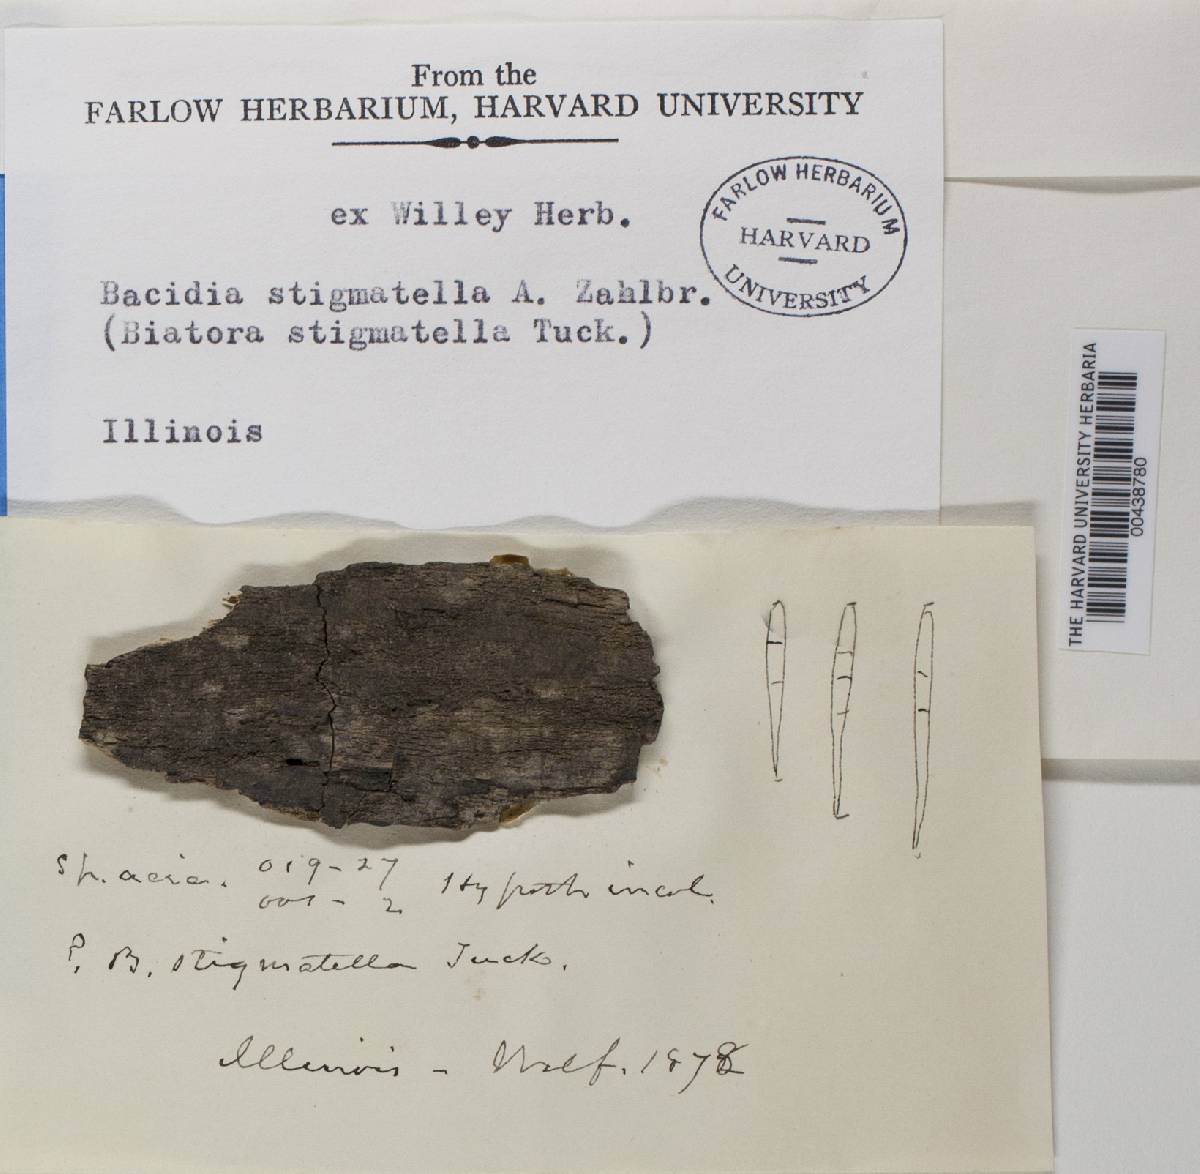 From the
FARLOW HERBARIUM, HARVARD UNIVERSITY
ex Willey Herb.
FARLOW HERBARIUM
HARVARD
UNIVERSITY
Bacidia stigmatella A. Zahlbr.
(Biatora stigmatella Tuck.)
Illinois
THE HARVARD UNIVERSITY HERBARIA
00438780
Sp. acic. 019-27 Hypoth incol.
001- 2
P. B. stigmatella Tuck.
Illinois - Wolf. 1878